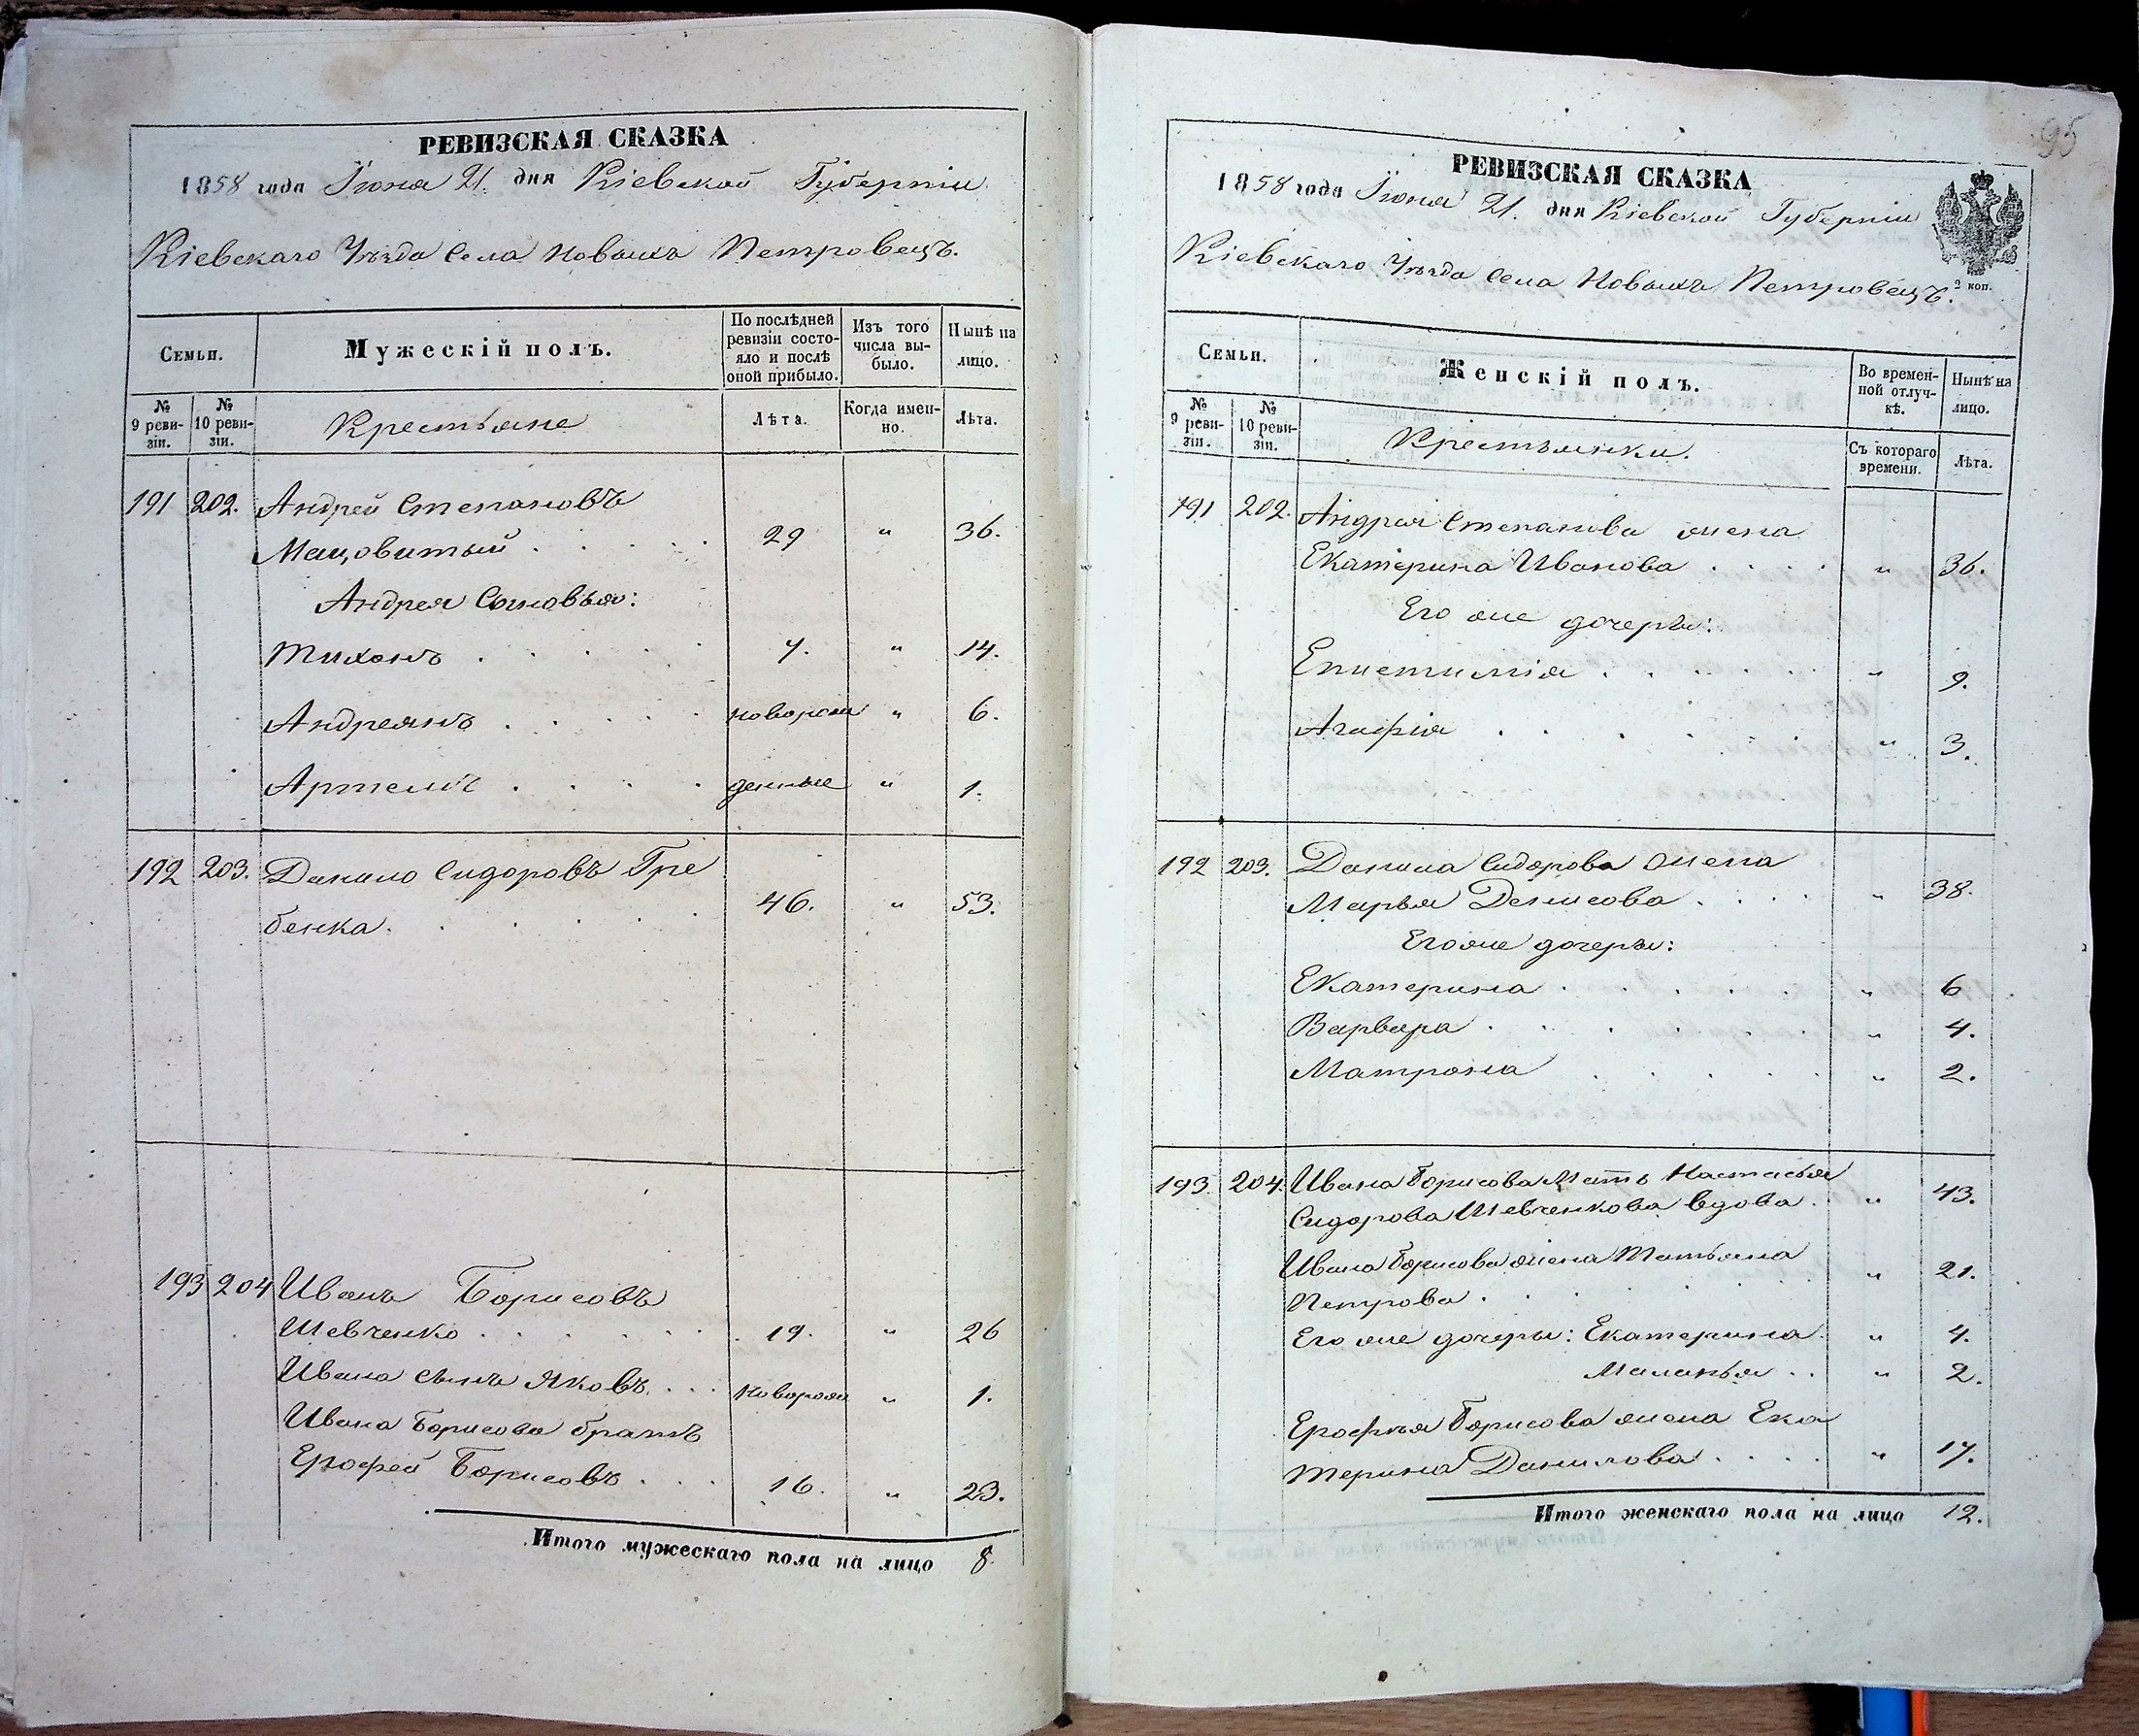 РЕВИЗСКАЯ СКАЗКА
1858 года Іюня 21. дня Кіевской Губерніи
Кіевскаго Уѣзда Села Новыхъ Петровецъ.
Семьи.
Мужескій полъ.
По послѣдней ревизіи состояло и послѣ оной прибыло.
Изъ того числа выбыло.
Нынѣ на лицо.
№ 9 ревизіи.
№ 10 ревизіи.
Крестьяне
Лѣта.
Когда именно.
Лѣта.
191 202. Андрей Степановъ
Мацовитый . . . . . 29 " 36.
Андрея Сыновья:
Тихонъ . . . . . 7. " 14.
Андреянъ . . . . . новорож " 6.
Артемъ . . . . денные " 1.
192 203. Данило Сидоровъ Гре
бенка . . . . . 46. " 53.
193 204 Иванъ Борисовъ
Шевченко . . . . . . 19. " 26
Ивана сынъ Яковъ . . . новорож " 1.
Ивана Борисова братъ
Ерофей Борисовъ . . . 16. " 23.
Итого мужескаго пола на лицо 8
95
РЕВИЗСКАЯ СКАЗКА
1858 года Іюня 21. дня Кіевской Губерніи
Кіевскаго Уѣзда Села Новыхъ Петровецъ.
2 коп.
Семьи.
Женскій полъ.
Во временной отлучкѣ.
Нынѣ на лицо.
№ 9 ревизіи.
№ 10 ревизіи.
Крестьянки.
Съ котораго времени.
Лѣта.
191 202. Андрея Степанова жена
Екатерина Иванова . . . . " 36.
Его же дочери:
Епистимія . . . . . . " 9.
Агафія . . . . . . " 3.
192 203. Данила Сидорова жена
Марья Денисова . . . . " 38.
Его же дочери:
Екатерина . . . . . " 6
Варвара . . . . . . " 4.
Матрона . . . . . " 2.
193. 204. Ивана Борисова Мать Настасья
Сидорова Шевченкова вдова . " 43.
Ивана Борисова жена Татьяна
Петрова . . . . . . " 21.
Его же дочери: Екатерина . " 4.
Маланья . . " 2.
Ерофѣя Борисова жена Ека
терина Данилова . . . . " 17.
Итого женскаго пола на лицо 12.